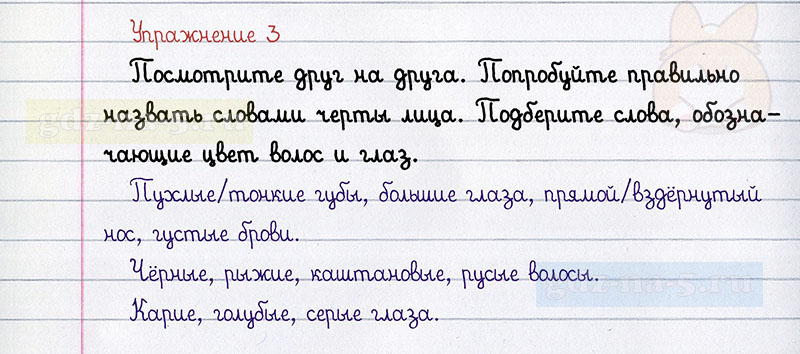 Упражнение 3
Посмотрите друг на друга. Попробуйте правильно
назвать словами черты лица. Подберите слова, обозна-
чающие цвет волос и глаз.
Пухлые/тонкие губы, большие глаза, прямой/вздёрнутый
нос, густые брови.
Чёрные, рыжие, каштановые, русые волосы.
Карие, голубые, серые глаза.
gdz-na-5.ru
gdz-na-5.ru